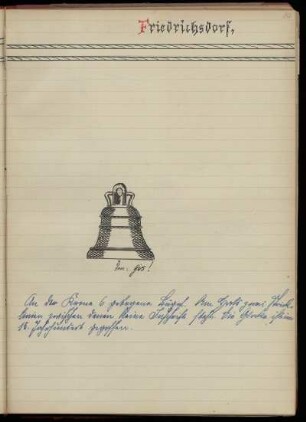 Friedrichsdorf,
Ton: gis!
An der Krone 6 gebogene Bügel. Am Hals zwei
zwischen denen keine Inschrift steht. Die Glocke ist im
18. Jahrhundert gegossen.